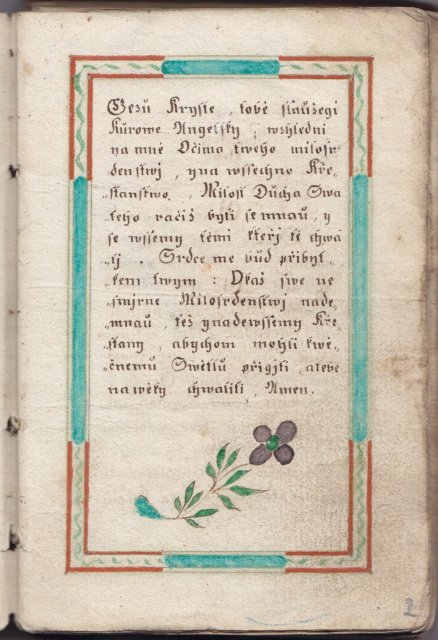 Gezu Kryste, tobě slaužegi
Kůrowe Angelsky, wzhledni
na mně Očima tweho milosr
denstwj, yna wssechno Kře„
„stanstwo, Milost Ducha Swa
teho račiž byti se mnau, y
se wssemy těmi kteřj tě chwá
„lj. Srdce me bud přibyt„
„kem twym: Ukaž swe ne
„smjrne Milosrdenstwj nade„
„mnau, též ynadewssemy Kře„
„stany, abychom mohli kwě„
„čnemu Swětlu přigjti, atebe
na wěky chwalili, Amen.
2